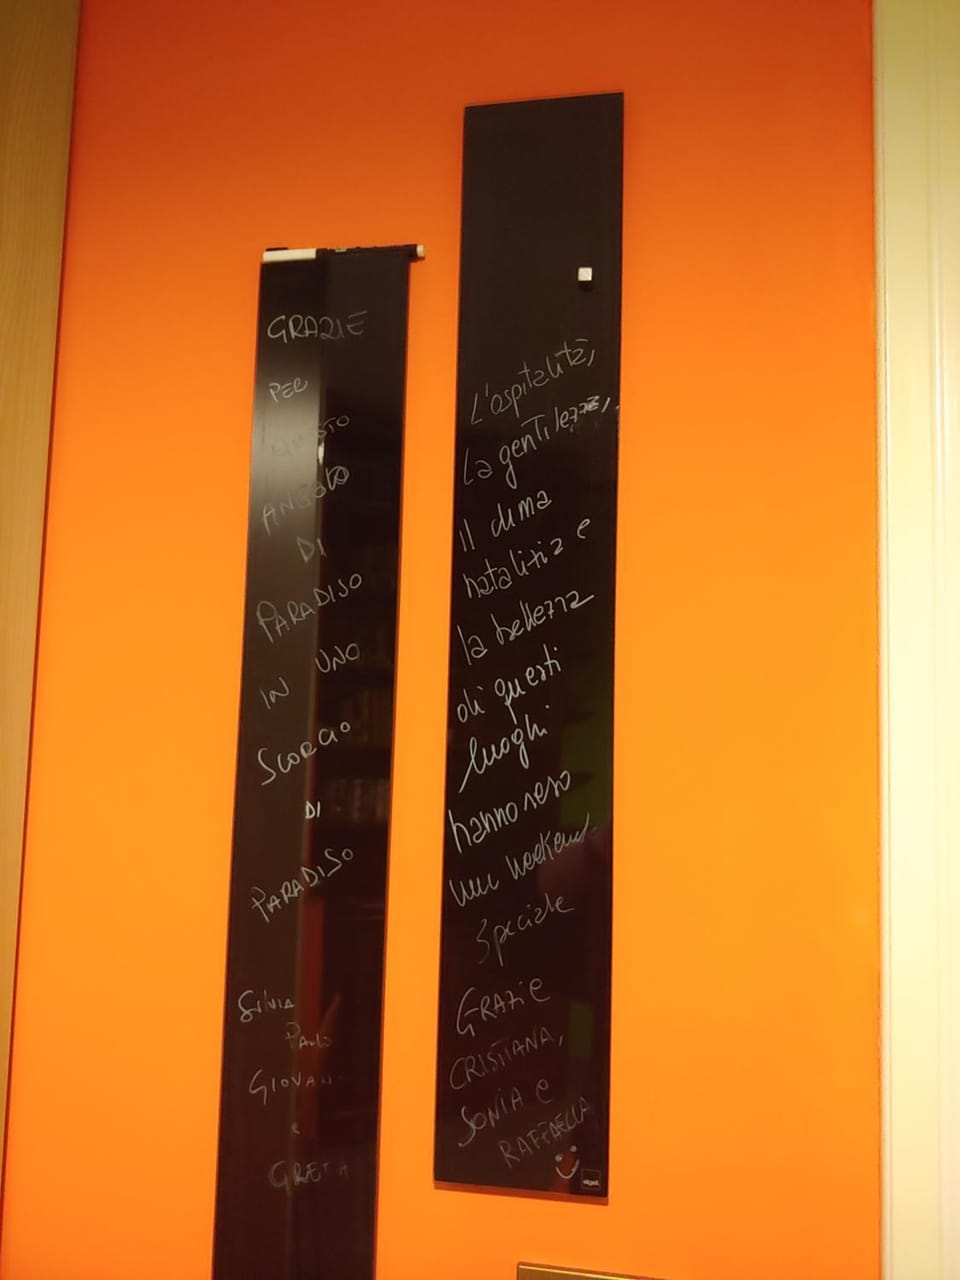 GRAZIE
PER
QUESTO
ANGOLO
DI
PARADISO
IN UNO
SCORCIO
DI
PARADISO
Silvia
Paolo
GIOVANNI
e
GRETA
L'ospitalità,
la gentilezza,
il clima
natalizia e
la bellezza
di questi
luoghi
hanno reso
un weekend
speciale
GRAZIE
CRISTIANA,
SONIA e
RAFFAELLA
sigel